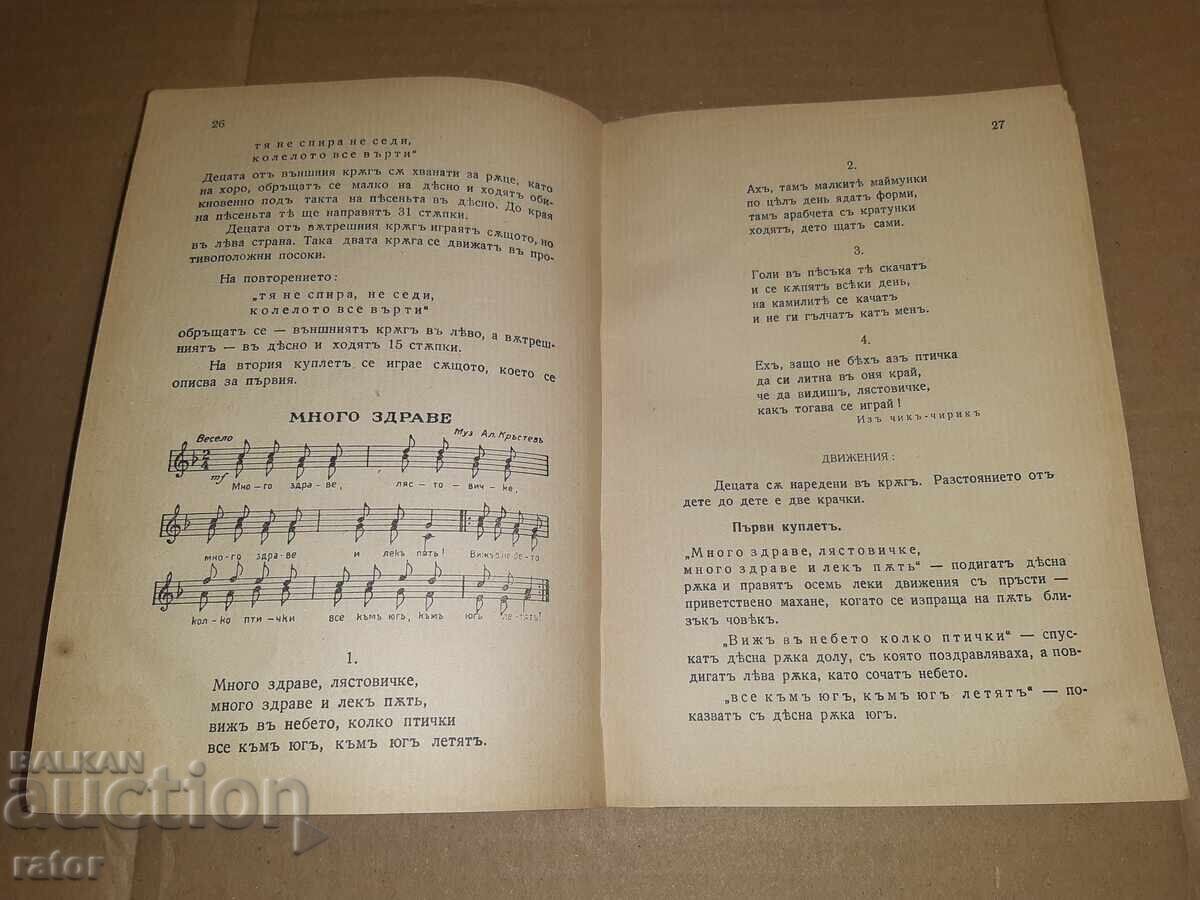 26
тя не спира не седи,
колелото все върти“
Децата отъ външния крѫгъ сѫ хванати за рѫце, като
на хоро, обръщатъ се малко на дѣсно и ходятъ оби-
кновенно подъ такта на пѣсеньта въ дѣсно. До края
на пѣсеньта тѣ ще направятъ 31 стѫпки.
Децата отъ вѫтрешния крѫгъ играятъ сѫщото, но
въ лѣва страна. Така двата крѫга се движатъ въ про-
тивоположни посоки.
На повторението:
„тя не спира, не седи,
колелото все върти“
обръщатъ се — външниятъ крѫгъ въ лѣво, а вѫтреш-
ниятъ — въ дѣсно и ходятъ 15 стѫпки.
На втория куплетъ се играе сѫщото, което се
описва за първия.
МНОГО ЗДРАВЕ
Весело
Муз Ал. Кръстевъ
2/4
mf
Мно-го здра-ве, ляс-то-вич-ке,
мно-го здра-ве и лекъ пѫть! Вижъ в не-бе-то
кол-ко пти-чки все къмъ югъ, къмъ югъ ле-тятъ!
1.
Много здраве, лястовичке,
много здраве и лекъ пѫть,
вижъ въ небето, колко птички
все къмъ югъ, къмъ югъ летятъ.
27
2.
Ахъ, тамъ малкитѣ маймунки
по цѣлъ день ядатъ форми,
тамъ арабчета съ кратунки
ходятъ, дето щатъ сами.
3.
Голи въ пѣсъка тѣ скачатъ
и се кѫпятъ всѣки день,
на камилитѣ се качатъ
и не ги гълчатъ катъ менъ.
4.
Ехъ, защо не бѣхъ азъ птичка
да си литна въ оня край,
че да видишъ, лястовичке,
какъ тогава се играй!
Изъ чикъ-чирикъ
ДВИЖЕНИЯ:
Децата сѫ наредени въ крѫгъ. Разстоянието отъ
дете до дете е две крачки.
Първи куплетъ.
„Много здраве, лястовичке,
много здраве и лекъ пѫть“ — подигатъ дѣсна
рѫка и правятъ осемь леки движения съ пръсти —
приветствено махане, когато се изпраща на пѫть бли-
зъкъ човѣкъ.
„Вижъ въ небето колко птички“ — спус-
катъ дѣсна рѫка долу, съ която поздравляваха, а пов-
дигатъ лѣва рѫка, като сочатъ небето.
„все къмъ югъ, къмъ югъ летятъ“ — по-
казватъ съ дѣсна рѫка югъ.
BALKAN
auction
rator